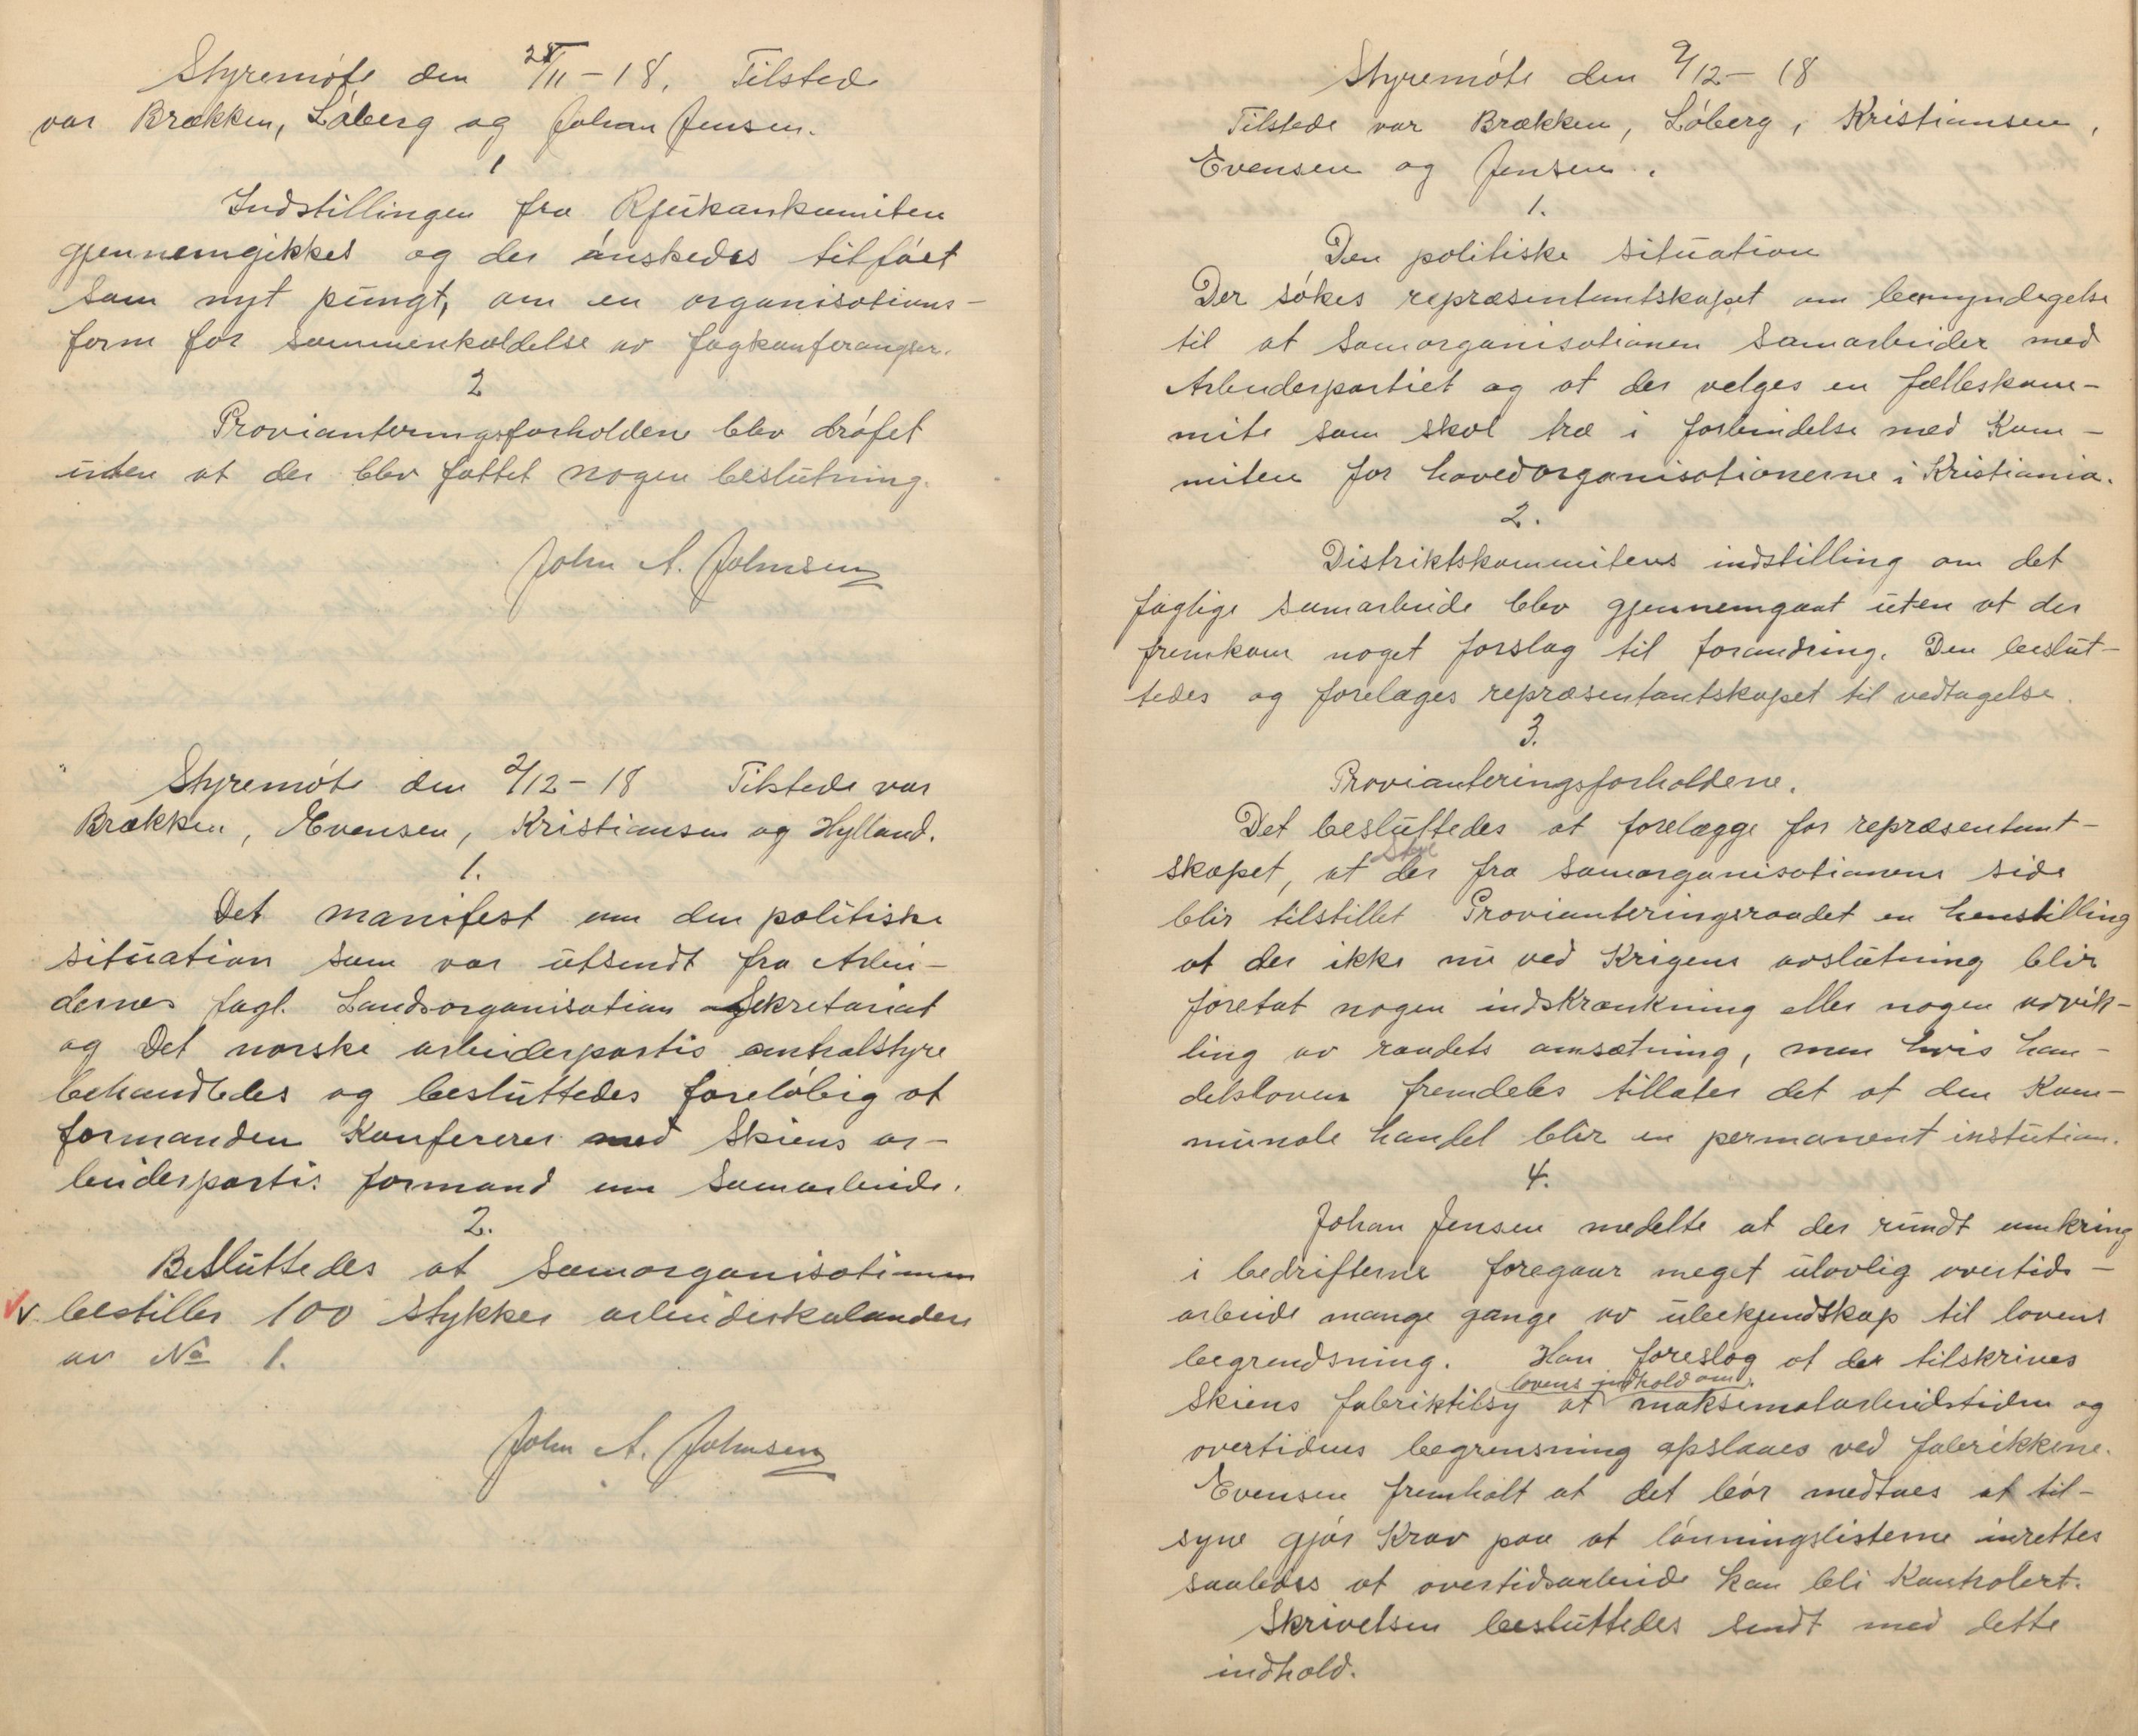 Styremøte den 28/11 – 18. Tilstede
var Brækken, Løberg og Johan Jensen.
1
Indstillingen fra Rjukankomiteen
gjennemgikkes og der ønskedes tilføiet
som nyt pungt, om en organisations-
form for sammenkaldelse av fagkonferangser.
2
Provianteringsforholdene blev drøfet
uten at der blev fattet nogen beslutning.
John A. Johnsen
Styremøte den 2/12 – 18 Tilstede var
Brækken, Evensen, Kristiansen og Hylland.
1.
Det manifest om den politiske
situation som var utsendt fra Arbei-
dernes fagl. Landsorganisation Sekretariat
og Det norske arbeiderpartis centralstyre
behandledes og besluttedes foreløbig at
formanden konfererer med Skiens ar-
beiderpartis formand om samarbeide.
2.
Besluttedes at samorganisationen
v bestiller 100 stykker arbeiderkalandere
av No 1.
John A. Johnsen
Styremøte den 9/12 – 18
Tilstede var Brækken, Løberg, Kristiansen,
Evensen og Jensen.
1.
Den politiske situation
Der søkes repræsentantskapet om bemyndigelse
til at samorganisationen samarbeider med
Arbeiderpartiet og at der velges en fælleskom-
mite som skal træ i forbindelse med Kom-
miteen for hovedorganisationerne i Kristiania.
2.
Distriktskommiteens indstilling om det
faglige samarbeide blev gjennemgaat uten at der
fremkom noget forslag til forandring. Den beslut-
tedes og forelæges repræsentantskapet til vedtagelse.
3.
Provianteringsforholdene.
Det besluttedes at forelægge for repræsentant-
skapet, at der fra samorganisationens side
blir tilstillet Provianteringsraadet en henstilling
at der ikke nu ved krigens avslutning blir
foretat nogen indskrænkning eller nogen avvik-
ling av raadets omsætning, men hvis han-
delsloven fremdeles tillater det at den kom-
munale handel blir en permanent instution.
4.
Johan Jensen medelte at der rundt omkring
i bedrifterne foregaar meget ulovlig overtids-
arbeide mange gange av ubekjendtskap til lovens
begrendsning. Han foreslog at der tilskrives
lovens indhold om
Skiens fabriktilsy at maksimalarbeidstiden og
overtidens begrensning opslaaes ved fabrikkene.
Evensen fremholt at det bør medtaes at til-
syne gjør krav paa at lønningslisterne inrettes
saaledes at overtidsarbeide kan bli kontrolert.
Skrivelsen besluttedes sendt med dette
indhold.